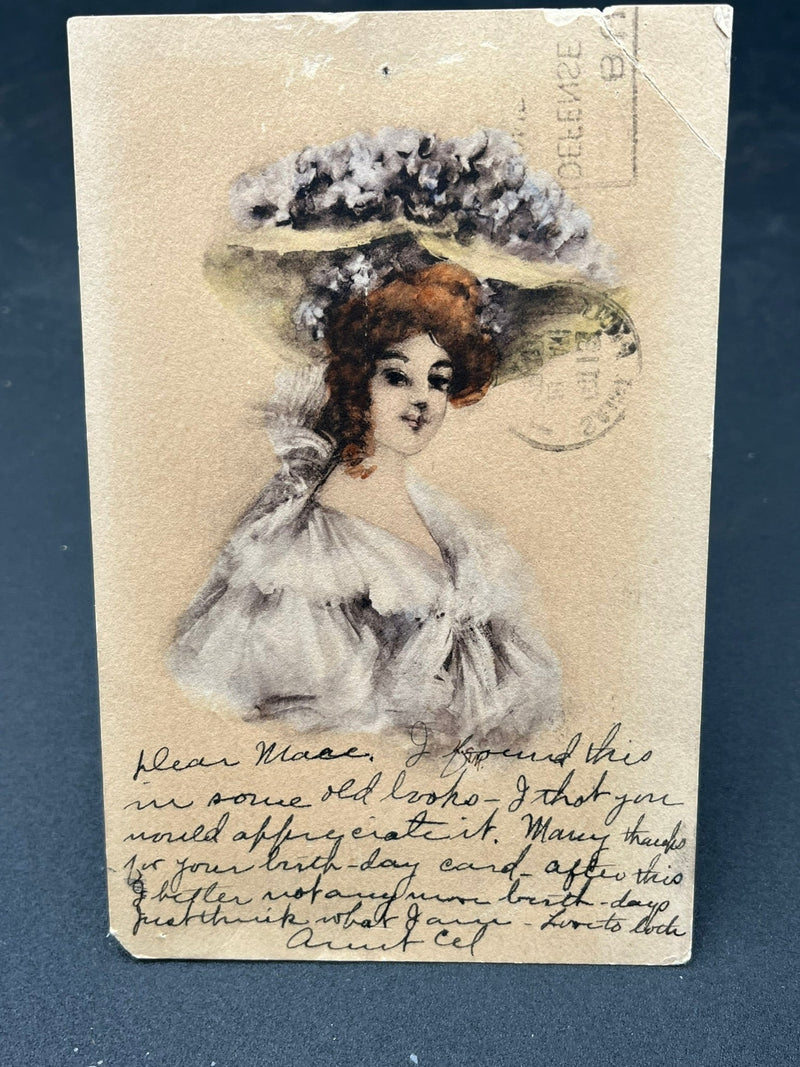 DEFENSE
BU
Dear Mace. I found this
in some old books - I thot you
would appreyciate it. Many thanks
for your birth-day card - after this
I better not any more birth-days
Just think what I am - Love to both
Aunt Cel